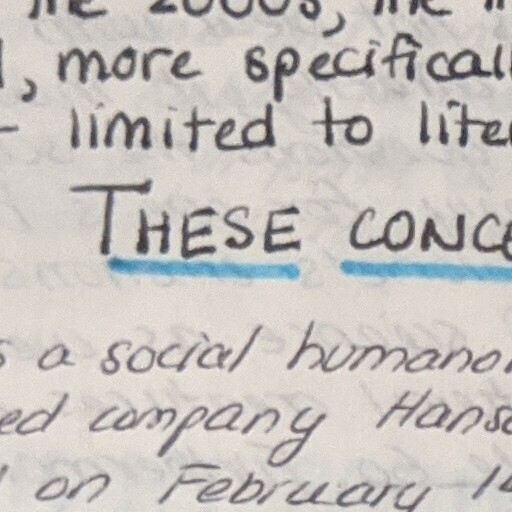 the 2000s, the
, more specifical
- limited to lite
THESE CONC
s a social humano
ed company Hans
on February 14